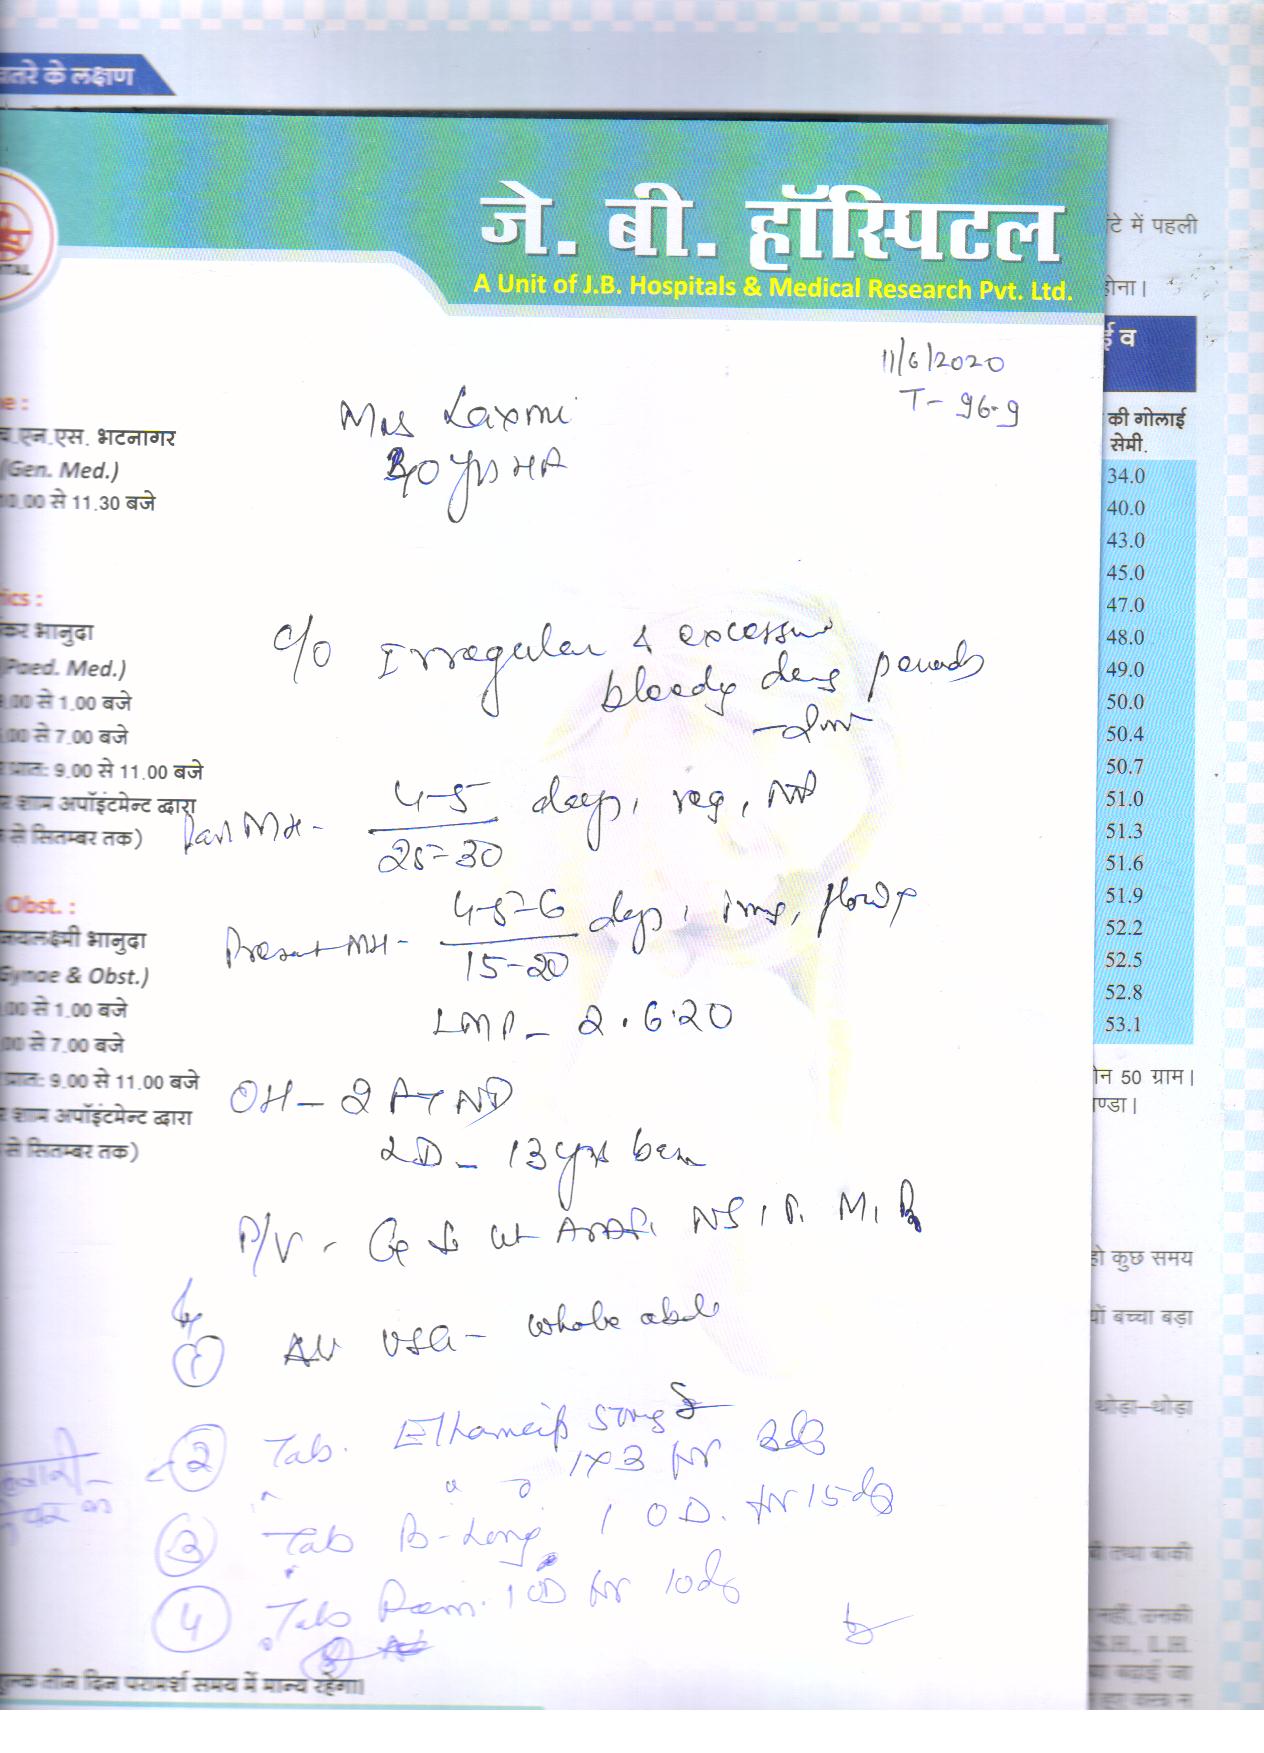 खतरे के लक्षण
जे. बी. हॉस्पिटल
A Unit of J.B. Hospitals & Medical Research Pvt. Ltd.
11/6/2020
T- 96.9
Mrs Laxmi
40 yrs
एन.एस. भटनागर
(Gen. Med.)
10.00 से 11.30 बजे
भानुदा
(Paed. Med.)
.00 से 1.00 बजे
.00 से 7.00 बजे
प्रात: 9.00 से 11.00 बजे
शाम अपॉइंटमेन्ट द्वारा
से सितम्बर तक)
Obst. :
जयलक्ष्मी भानुदा
Gynae & Obst.)
.00 से 1.00 बजे
.00 से 7.00 बजे
प्रात: 9.00 से 11.00 बजे
शाम अपॉइंटमेन्ट द्वारा
से सितम्बर तक)
c/o Irregular & excessive
bleeding during periods
Past MH - 4-5 days, reg, NP
25-30
Present MH - 4-5-6 days, irreg, flow
15-20
LMP - 2.6.20
OH - 2 FTND
2D - 13 yrs
P/V - Cx Ut NS, P. M,
1 Adv USG - whole abd
2 Tab. Ethamcip
1x3 for 3ds
3 Tab B-Long 1 OD. for 15ds
4 Tab 1 OD for 10ds
शुल्क तीन दिन परामर्श समय में मान्य रहेगा।
में पहली
होना।
ई व
की गोलाई
सेमी.
34.0
40.0
43.0
45.0
47.0
48.0
49.0
50.0
50.4
50.7
51.0
51.3
51.6
51.9
52.2
52.5
52.8
53.1
50 ग्राम।
कुछ समय
बच्चा बड़ा
थोड़ा-थोड़ा
तथा बाकी
उनकी